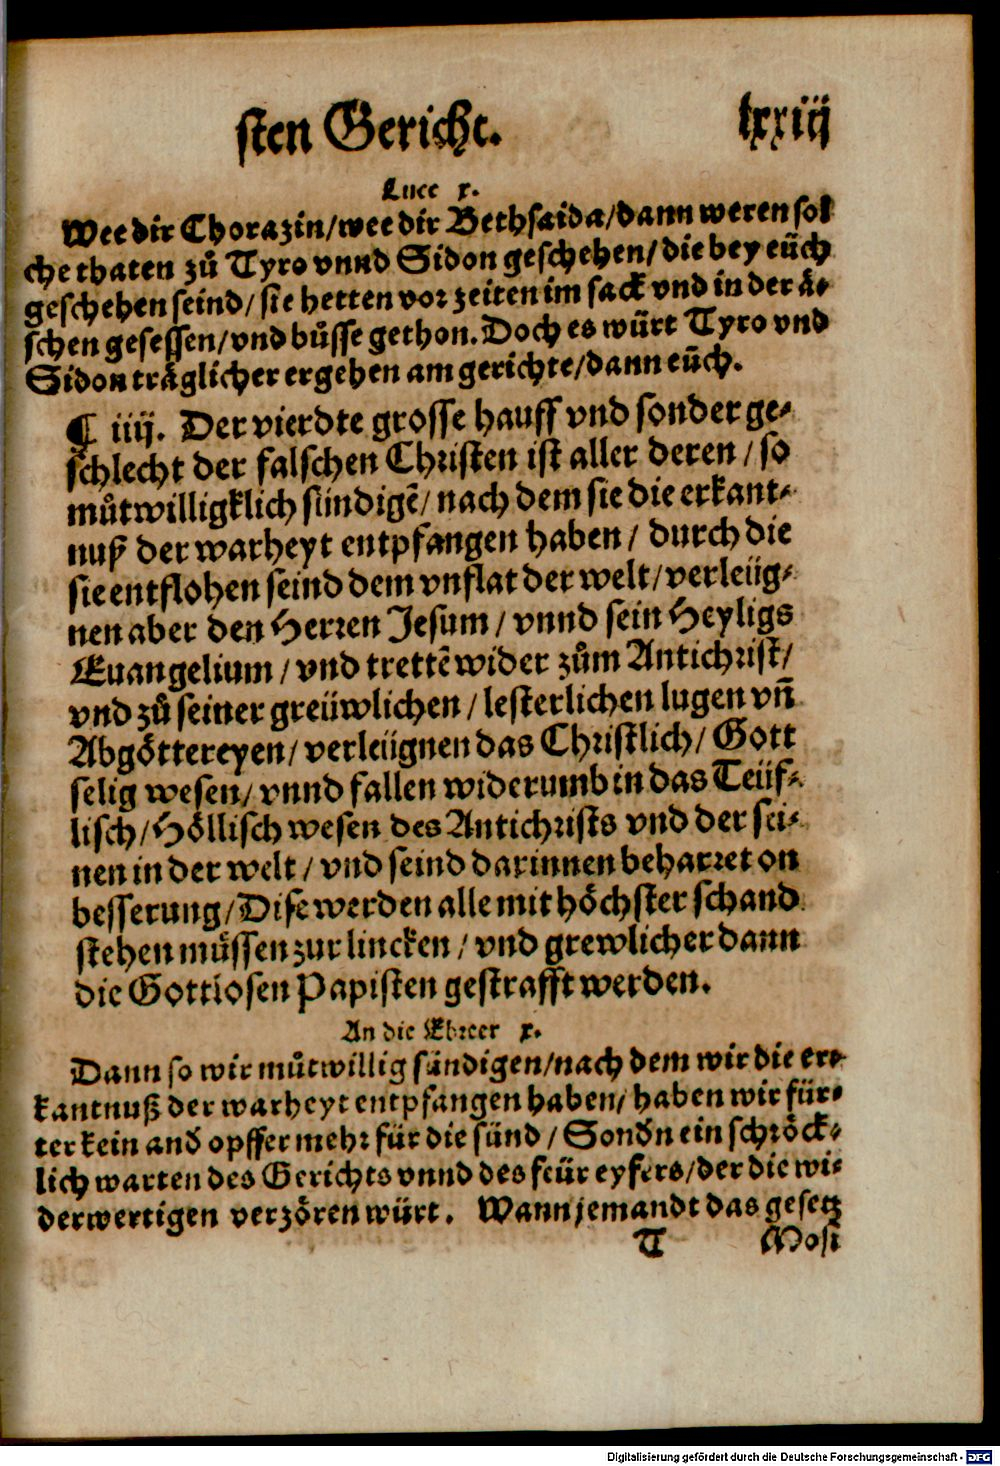 sten Gericht. lxxiij
Luce x.
Wee dir Chorazin/wee dir Bethsaida/dann weren sol
che thaten zů Tyro vnnd Sidon geschehen/die bey eüch
geschehen seind/sie hetten vor zeiten im sack vnd in der ä-
schen gesessen/vnd bůsse gethon. Doch es würt Tyro vnd
Sidon träglicher ergehen am gerichte/dann eüch.
¶ iiij. Der vierdte grosse hauff vnd sonder ge-
schlecht der falschen Christen ist aller deren/so
můtwilligklich sündigẽ/nach dem sie die erkant-
nuß der warheyt entpfangen haben/durch die
sie entflohen seind dem vnflat der welt/verleüg-
nen aber den Herren Jesum/vnnd sein Heyligs
Euangelium/vnd trettẽ wider zům Antichrist/
vnd zů seiner greüwlichen/lesterlichen lugen vñ
Abgöttereyen/verleügnen das Christlich/Gott
selig wesen/vnnd fallen widerumb in das Teüf-
lisch/Höllisch wesen des Antichrists vnd der sei-
nen in der welt/vnd seind darinnen beharret on
besserung/Dise werden alle mit höchster schand
stehen müssen zur lincken/vnd grewlicher dann
die Gottlosen Papisten gestrafft werden.
An die Ebreer x.
Dann so wir můtwillig sündigen/nach dem wir die er-
kantnuß der warheyt entpfangen haben/haben wir für-
ter kein and̕ opffer mehr für die sünd/Sond̕n ein schröck-
lich warten des Gerichts vnnd des feür eyfers/der die wi-
derwertigen verzören würt. Wann jemandt das gesetz
T Mosi
Digitalisierung gefördert durch die Deutsche Forschungsgemeinschaft - DFG